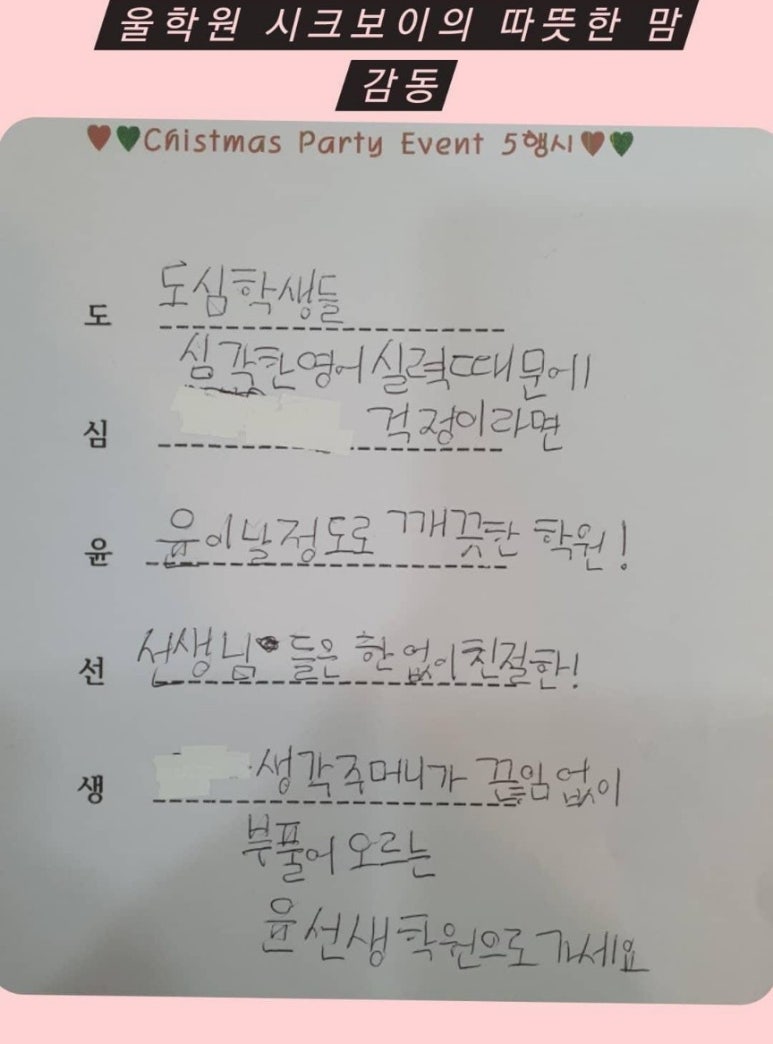 울학원 시크보이의 따뜻한 맘
감동
Chistmas Party Event 5행시
도 도심학생들
심각한영어실력때문에
심 걱정이라면
윤 윤이날정도로 깨끗한 학원!
선 선생님들은 한없이친절한!
생 생각주머니가 끊임없이
부풀어오르는
윤선생학원으로가세요